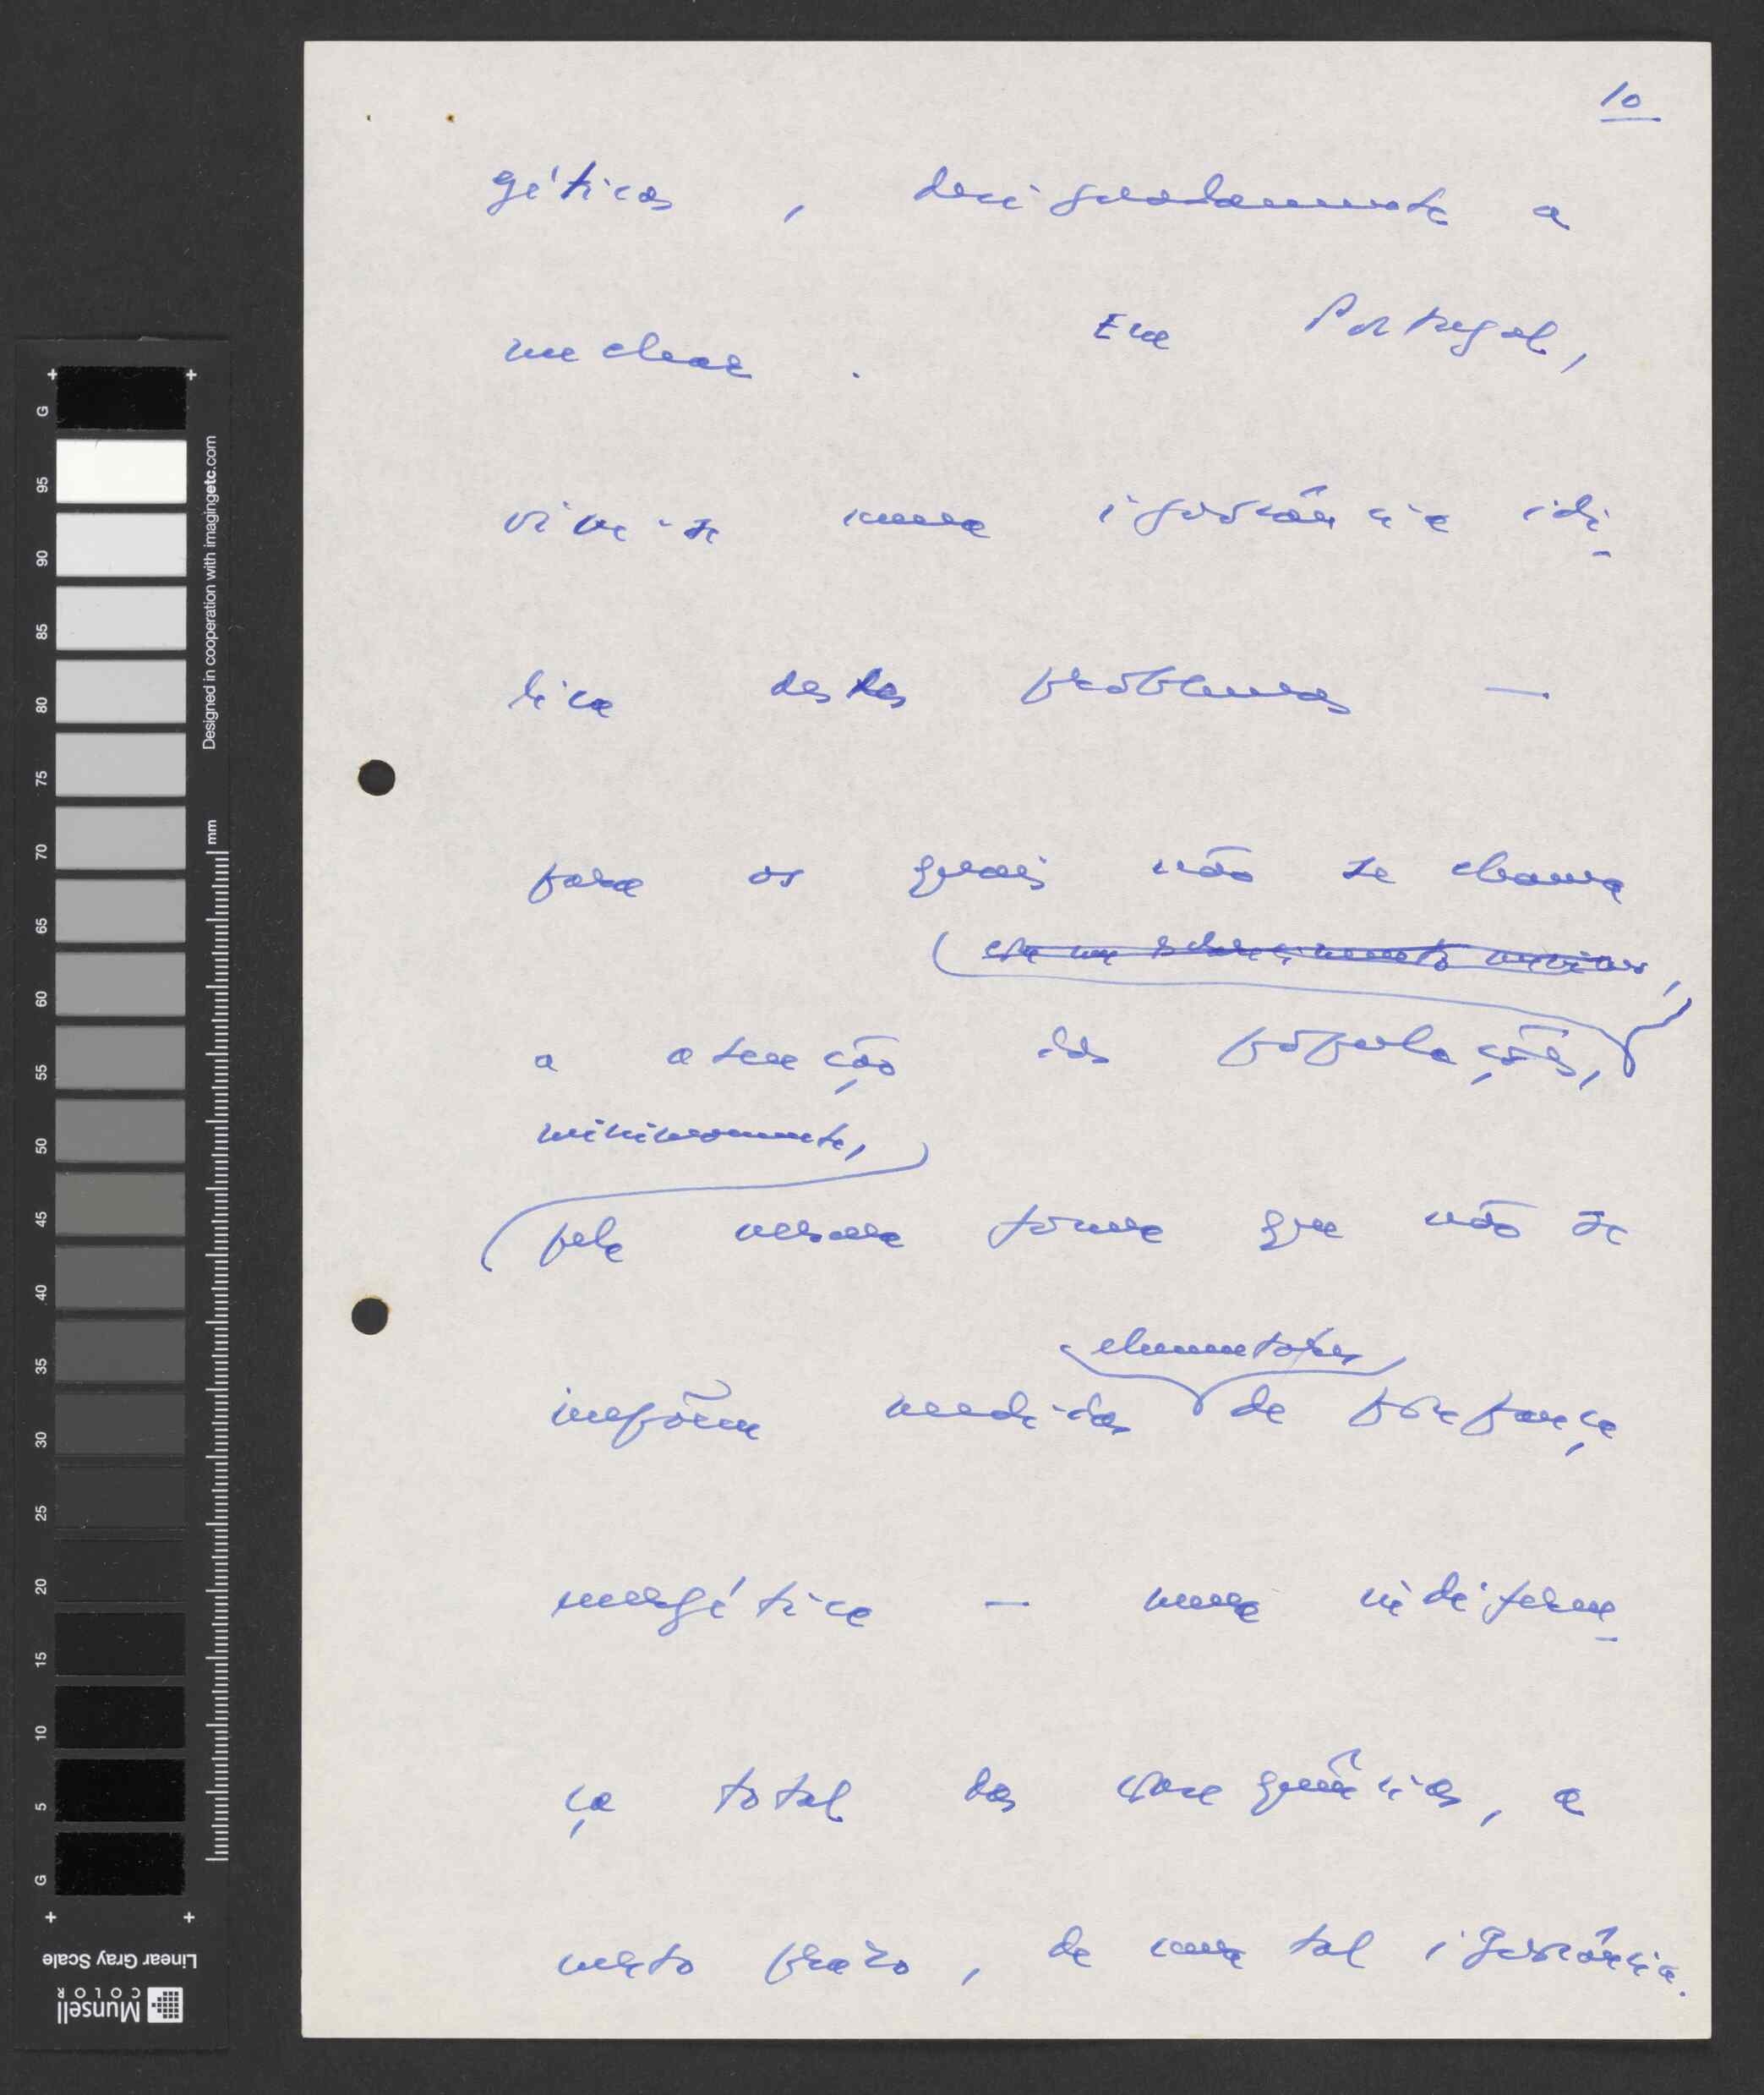 10
géticas, designadamente a
nuclear. Em Portugal,
vive-se numa ignorância idí-
lica destes problemas —
para os quais não se chama
a atenção das populações,
minimamente,
pela mesma forma que não se
elementares
impõem medidas de poupança
energética — numa indiferen-
ça total das consequências, a
curto prazo, de uma tal ignorância.
G
95
90
85
80
75
70
65
60
55
50
45
40
35
30
25
20
15
10
5
G
Designed in cooperation with imagingetc.com
mm
Linear Gray Scale
Munsell
COLOR